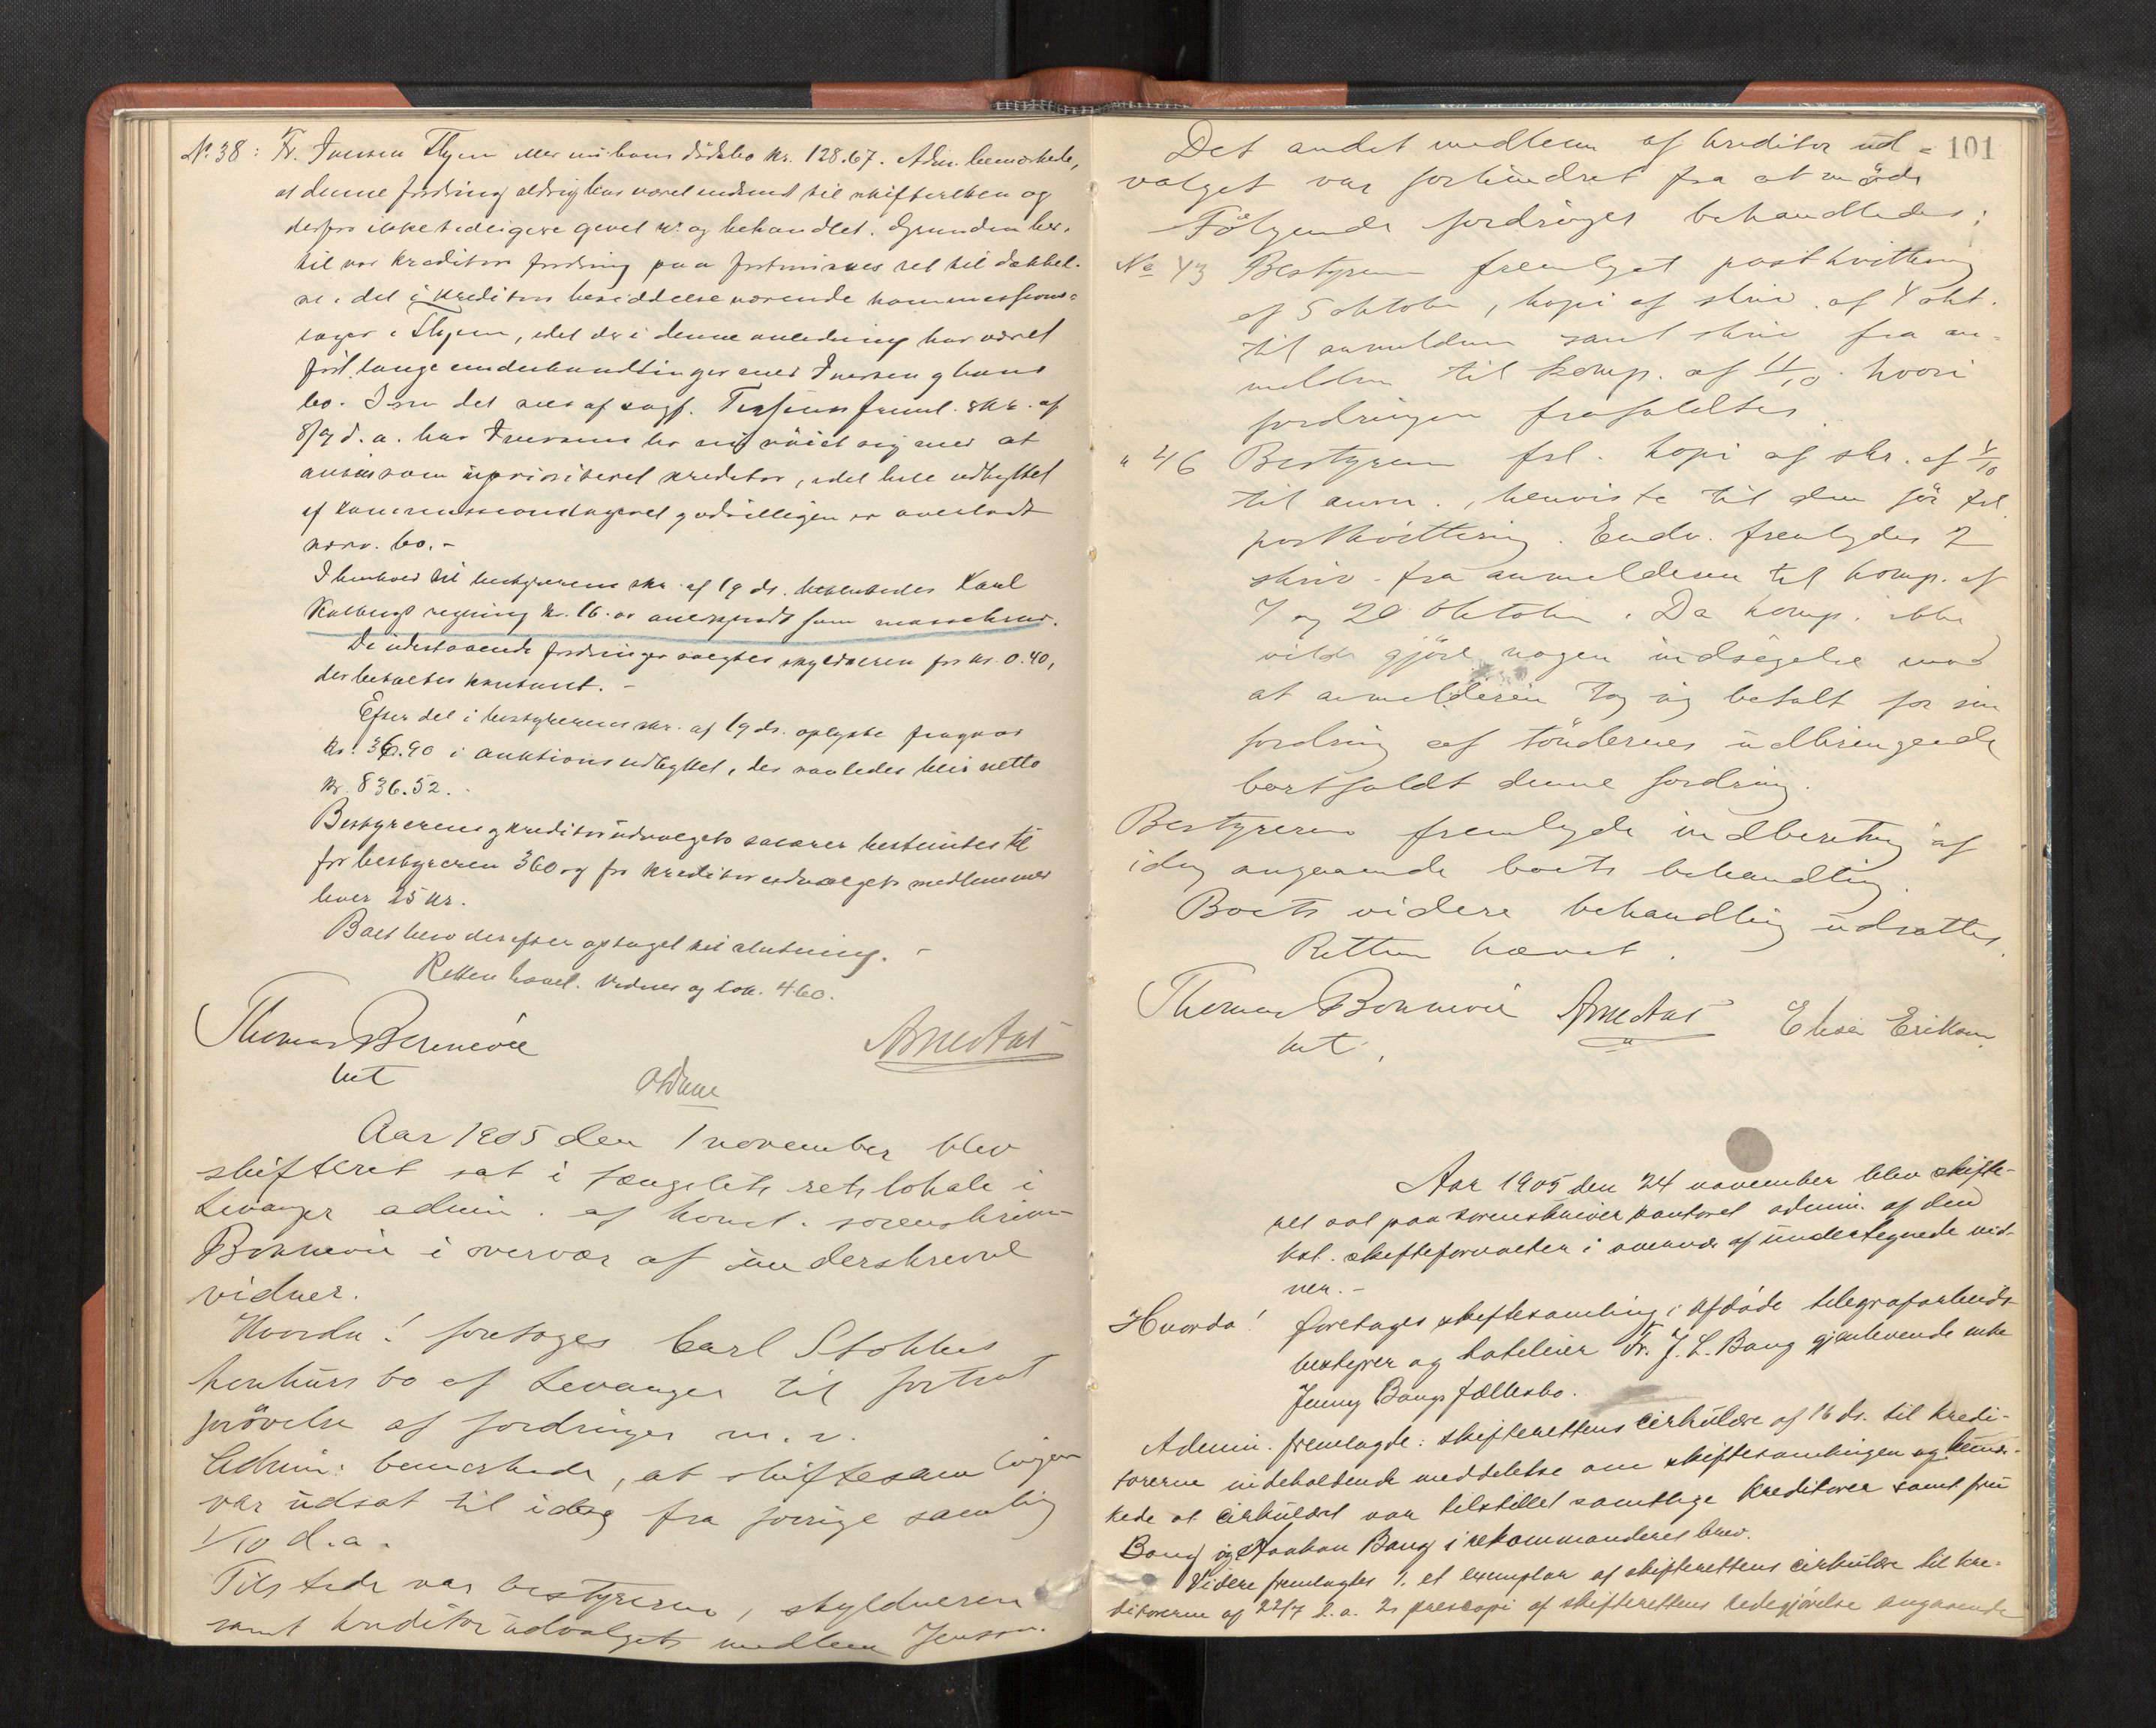 No. 38: Fr. Iversen Thyen eller nu hans dødsbo kr. 128.67. Adm. bemærkede,
at denne fordring aldrig har været indsendt til skifteretten og
derfor ikke tidligere givet nr. og behandlet. Grunden her-
til var kreditors fordring paa fortrinsret til dækkel-
se i det i kreditors besiddelse værende kommissions-
lager i Thyen, idet der i denne anledning har været
ført lange underhandlinger med Iversen og hans
bo. Som det sees af sagf. freml. skr. af
8/9 d. a. har Iversens bo nøiet sig med at
ansees som uprioriteret kreditor, idet hele udbyttet
af kommissionslageret godvilligen er overladt
nærv. bo. -
I henhold til bestyrerens skr. af 19 ds. besluttedes Karl
regning kr. 16.00 anerkjendt som massekrav.
De udestaaende fordringer solgtes skyldneren for kr. 0.40,
der betaltes kontant. -
Efter det i bestyrerens skr. af 19 ds. oplyste fragaar
kr. 36.90 i auktionsudbyttet, der saaledes blir netto
kr. 836.52.
Bestyrerens og kreditorudvalgets salærer bestemtes til
for bestyreren 360 og for kreditorudvalgets medlemmer
hver 25 kr.
Boet blev derefter optaget til slutning. -
Retten hævet. Vidner og lok. 4.60.
Thomas Bonnevie
kst
Aar 1905 den 1 november blev
skifteret sat i fængslets retslokale i
Levanger admin. af konst. sorenskriver
Bonnevie i overvær af underskrevne
vidner.
Hvorda! foretoges Carl Stokkes
konkursbo af Levanger til fortsat
prøvelse af fordringer m. v.
Admin: bemerkede, at skiftesamlingen
var udsat til idag fra forrige samling
1/10 d. a.
Tilstede var bestyreren, skyldneren
samt kreditorudvalgets medlem Jenssen.
101
Det andet medlem af kreditorud-
valget var forhindret fra at møde
Følgende fordringer behandledes:
No 43 Bestyreren fremlagt postkvittering
af 5 oktober, kopi af skriv. af 4 okt.
til anmelderen samt skriv fra an-
melderen til komp. af 11/10. hvori
fordringen frafaldtes.
" 46 Bestyreren frl. kopi af skr. af 4/10
til anm., henviste til den før frl.
postkvittering. Endv. fremlagdes 2
skriv. fra anmelderen til komp. af
7 og 20 oktober. Da komp. ikke
vilde gjøre nogen indsigelse mod
at anmelderen tog sig betalt for sin
fordring af tøndernes udbringende
bortfaldt denne fordring.
Bestyreren fremlagde indberetning af
idag angaaende boets behandling.
Boets videre behandling udsattes.
Retten hævet.
Thomas Bonnevie
kst.
Elisa Eriksen
Aar 1905 den 24 november blev skifte-
ret sat paa sorenskriverkontoret admin. af den
kst. skifteforvalter i overvær af undertegnede vid-
ner. -
Hvorda! foretages skiftesamling i afdøde telegrafarbeids
bestyrer og hoteleier Fr. J. L. Bang gjenlevende enke
Jenny Bangs fællesbo.
Admin. fremlagde: skifterettens cirkulære af 16 ds. til kredi-
torerne indeholdende meddelelse om skiftesamlingen og bemær-
kede at cirkulæret var tilstillet samtlige kreditorer samt fru
Bang og Haakon Bang i rekommanderet brev.
Videre fremlagdes 1. et exemplar af skifterettens cirkulære til kre-
ditorerne af 22/7 d. a. 2. prescopi af skifterettens redegjørelse angaaende